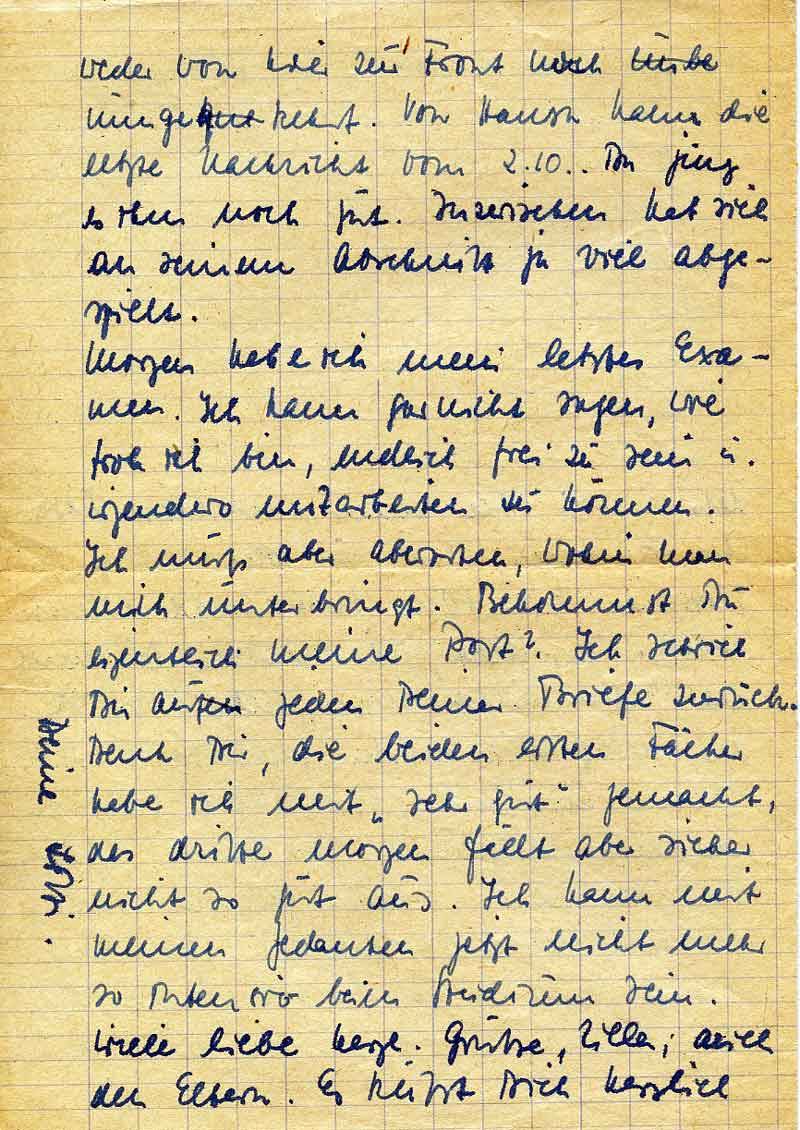 weder von hier zur Front noch
umgekehrt. Von Hansn kam die
letzte Nachricht vom 2.10.. Da ging
es ihm noch gut. Inzwischen hat sich
an seinem Abschnitt ja viel abge-
spielt.
Morgen habe ich mein letztes Exa-
men. Ich kann gar nicht sagen, wie
froh ich bin, endlich frei zu sein u.
irgendwo mitarbeiten zu können.
Ich muß aber abwarten, wohin man
mich unterbringt. Bekommst Du
eigentlich meine Post? Ich schrieb
Dir auf jeden Deiner Briefe zurück.
Denk Dir, die beiden ersten Fächer
habe ich mit „sehr gut" gemacht,
das dritte morgen fällt aber sicher
nicht so gut aus. Ich kann mit
meinen Gedanken jetzt nicht mehr
so intensiv beim Studium sein.
Viele liebe herzl. Grüße, auch
den Eltern. Es küßt Dich herzlich
Deine